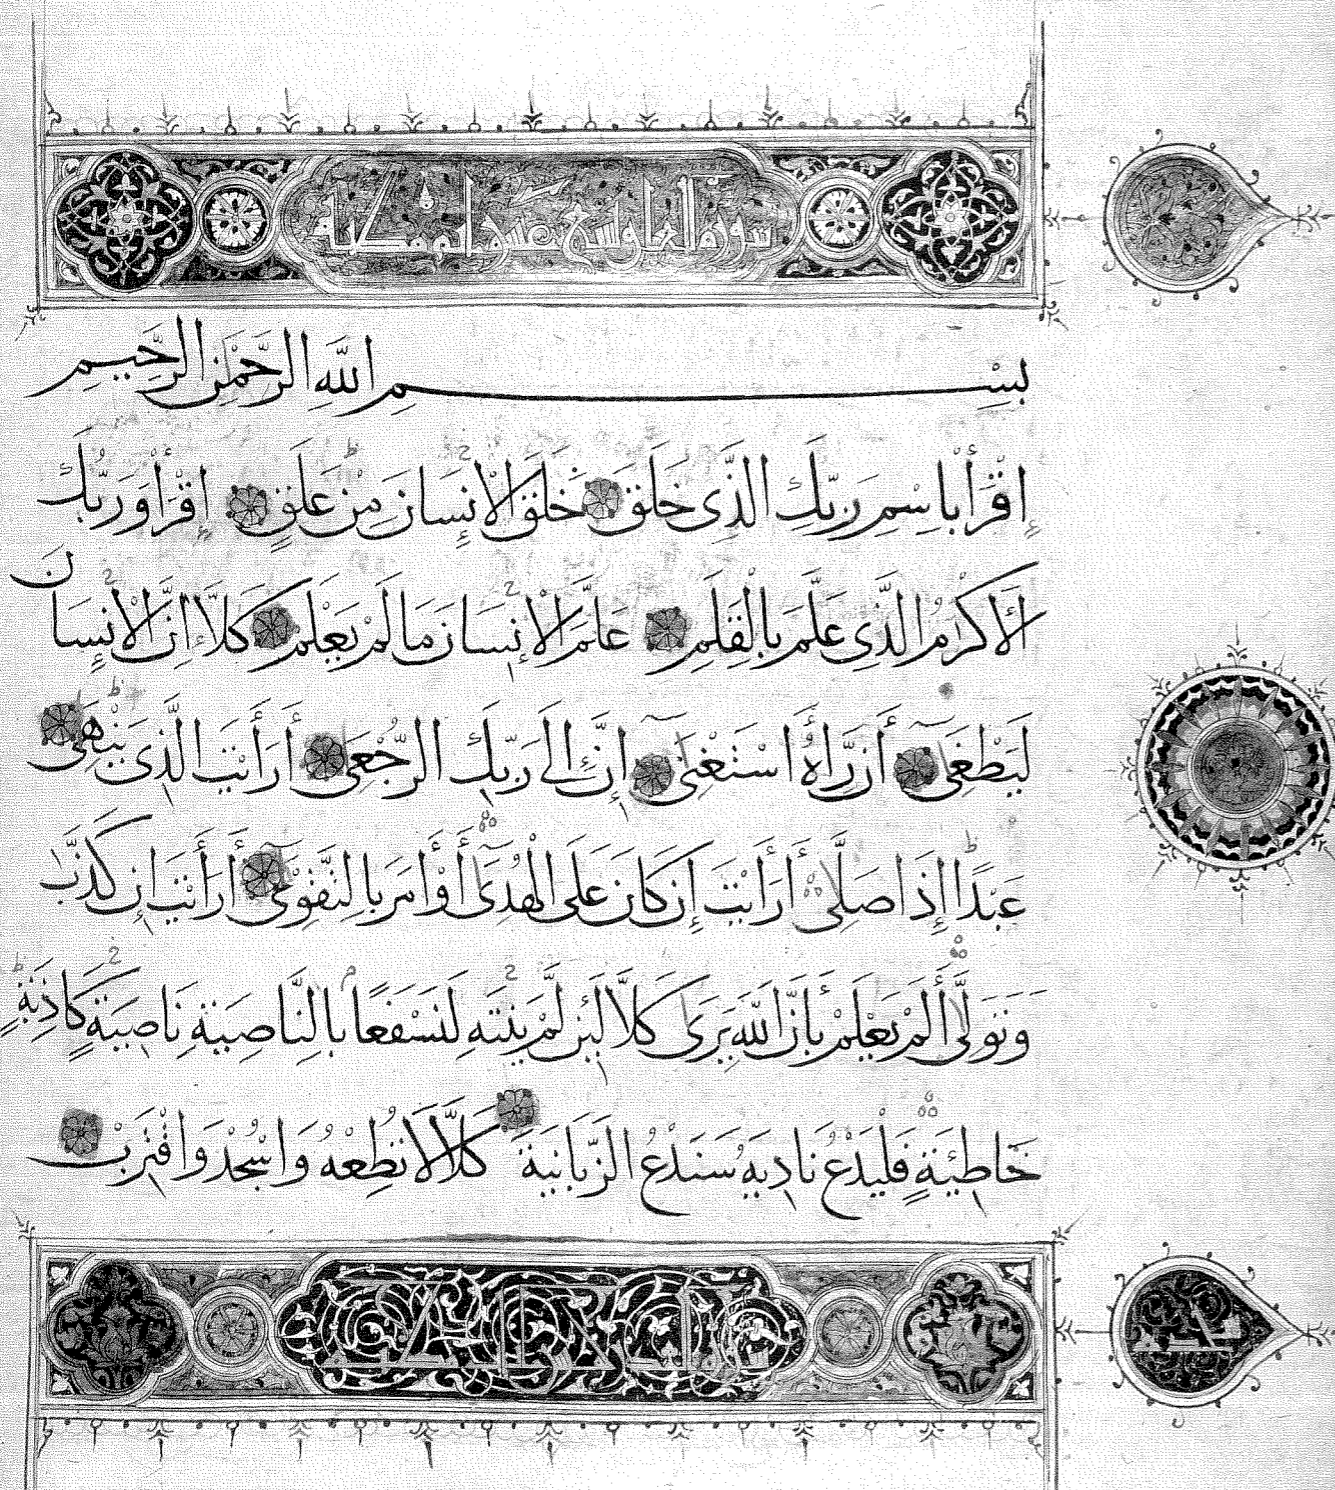 سورة العلق وهي تسع عشرة اية مكية
بِسْمِ اللَّهِ الرَّحْمَٰنِ الرَّحِيمِ
إِقْرَأْ بِاسْمِ رَبِّكَ الَّذِى خَلَقَ خَلَقَ الْإِنسَانَ مِنْ عَلَقٍ إِقْرَأْ وَرَبُّكَ
الْأَكْرَمُ الَّذِى عَلَّمَ بِالْقَلَمِ عَلَّمَ الْإِنسَانَ مَا لَمْ يَعْلَمْ كَلَّا إِنَّ الْإِنسَانَ
لَيَطْغَىٰ أَن رَّاهُ اسْتَغْنَىٰ إِنَّ إِلَىٰ رَبِّكَ الرُّجْعَىٰ أَرَأَيْتَ الَّذِى يَنْهَىٰ
عَبْدًا إِذَا صَلَّىٰ أَرَأَيْتَ إِن كَانَ عَلَى الْهُدَىٰ أَوْ أَمَرَ بِالتَّقْوَىٰ أَرَأَيْتَ إِن كَذَّبَ
وَتَوَلَّىٰ أَلَمْ يَعْلَمْ بِأَنَّ اللَّهَ يَرَىٰ كَلَّا لَئِن لَّمْ يَنتَهِ لَنَسْفَعًا بِالنَّاصِيَةِ نَاصِيَةٍ كَاذِبَةٍ
خَاطِئَةٍ فَلْيَدْعُ نَادِيَهُ سَنَدْعُ الزَّبَانِيَةَ كَلَّا لَا تُطِعْهُ وَاسْجُدْ وَاقْتَرِبْ